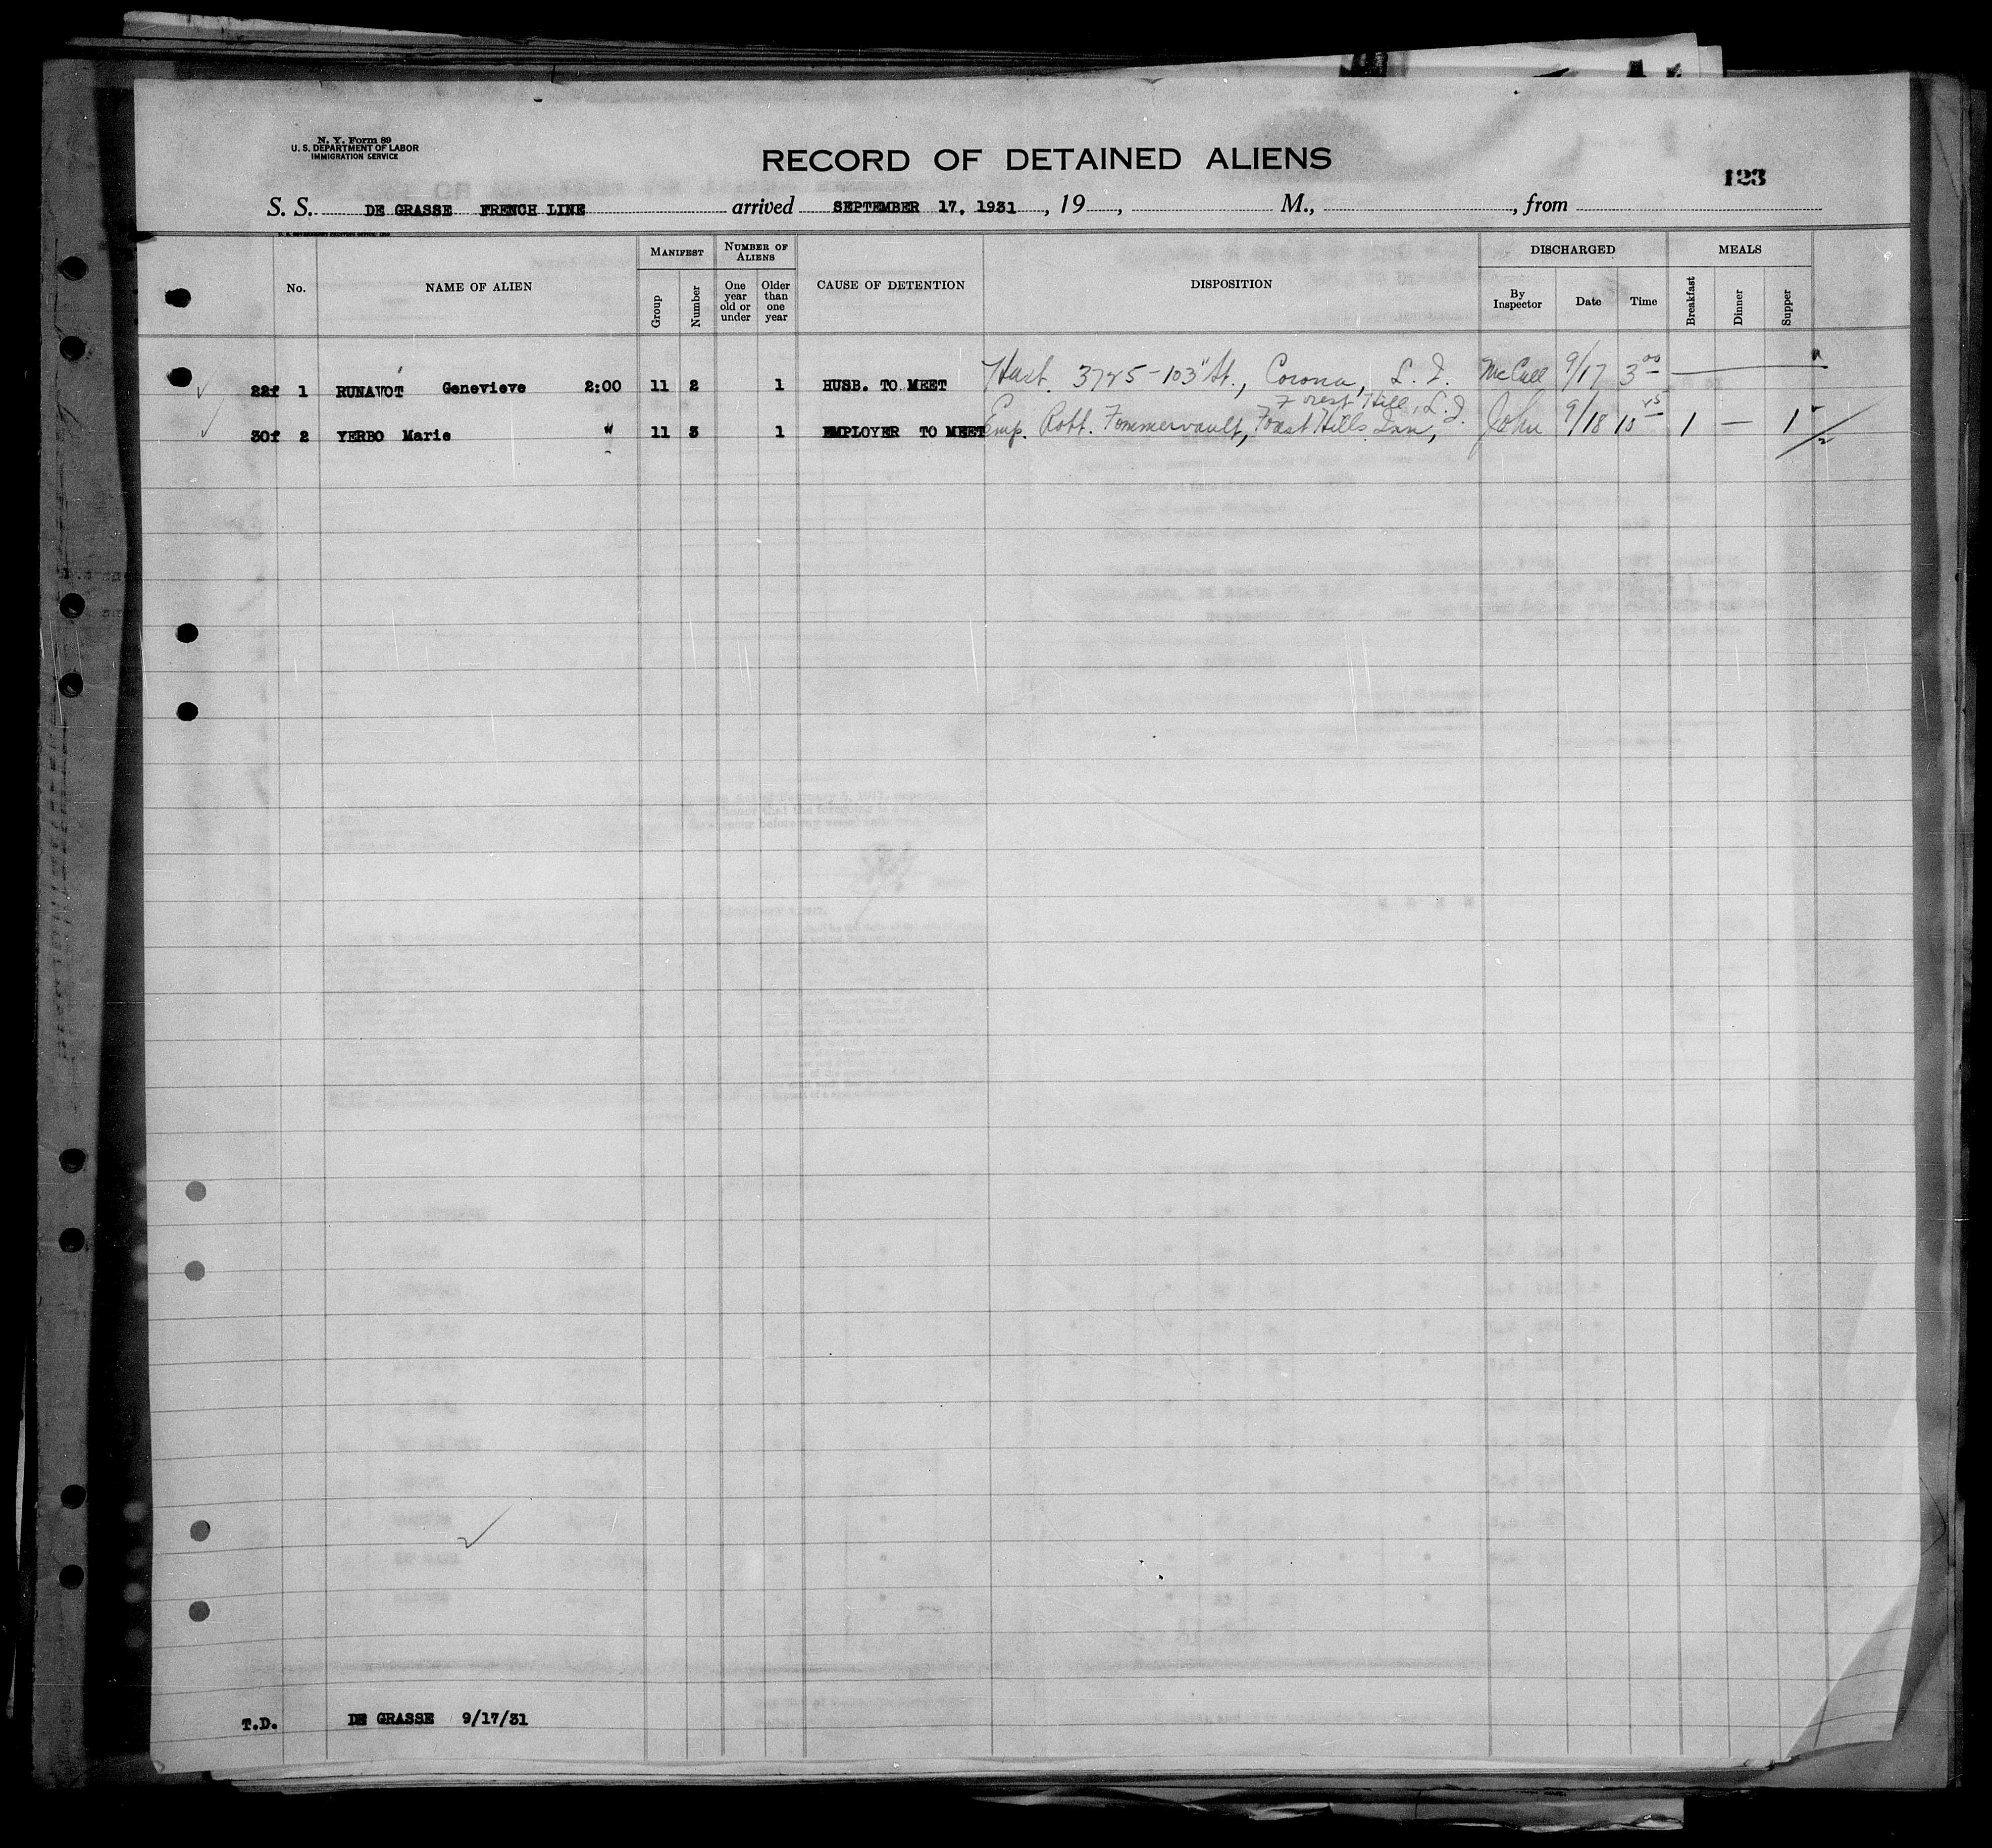 N. Y. Form 89
U. S. DEPARTMENT OF LABOR
IMMIGRATION SERVICE
RECORD OF DETAINED ALIENS
123
S. S. DE GRASSE FRENCH LINE arrived SEPTEMBER 17, 1931, 19, M., , from
No. NAME OF ALIEN MANIFEST Group Number NUMBER OF ALIENS One year old or under Older than one year CAUSE OF DETENTION DISPOSITION DISCHARGED By Inspector Date Time MEALS Breakfast Dinner Supper
22f 1 RUNAVOT Genevieve 2:00 11 2 1 HUSB. TO MEET 3725-103" St., Corona, L. I. McCall 9/17 3 00
Forest Hill, L.I.
30f 2 YERBO Marie " 11 3 1 EMPLOYER TO MEET Emp. Robt. Forest Hills Inn, John 9/18 10 1 — 1
T.D. DE GRASSE 9/17/31